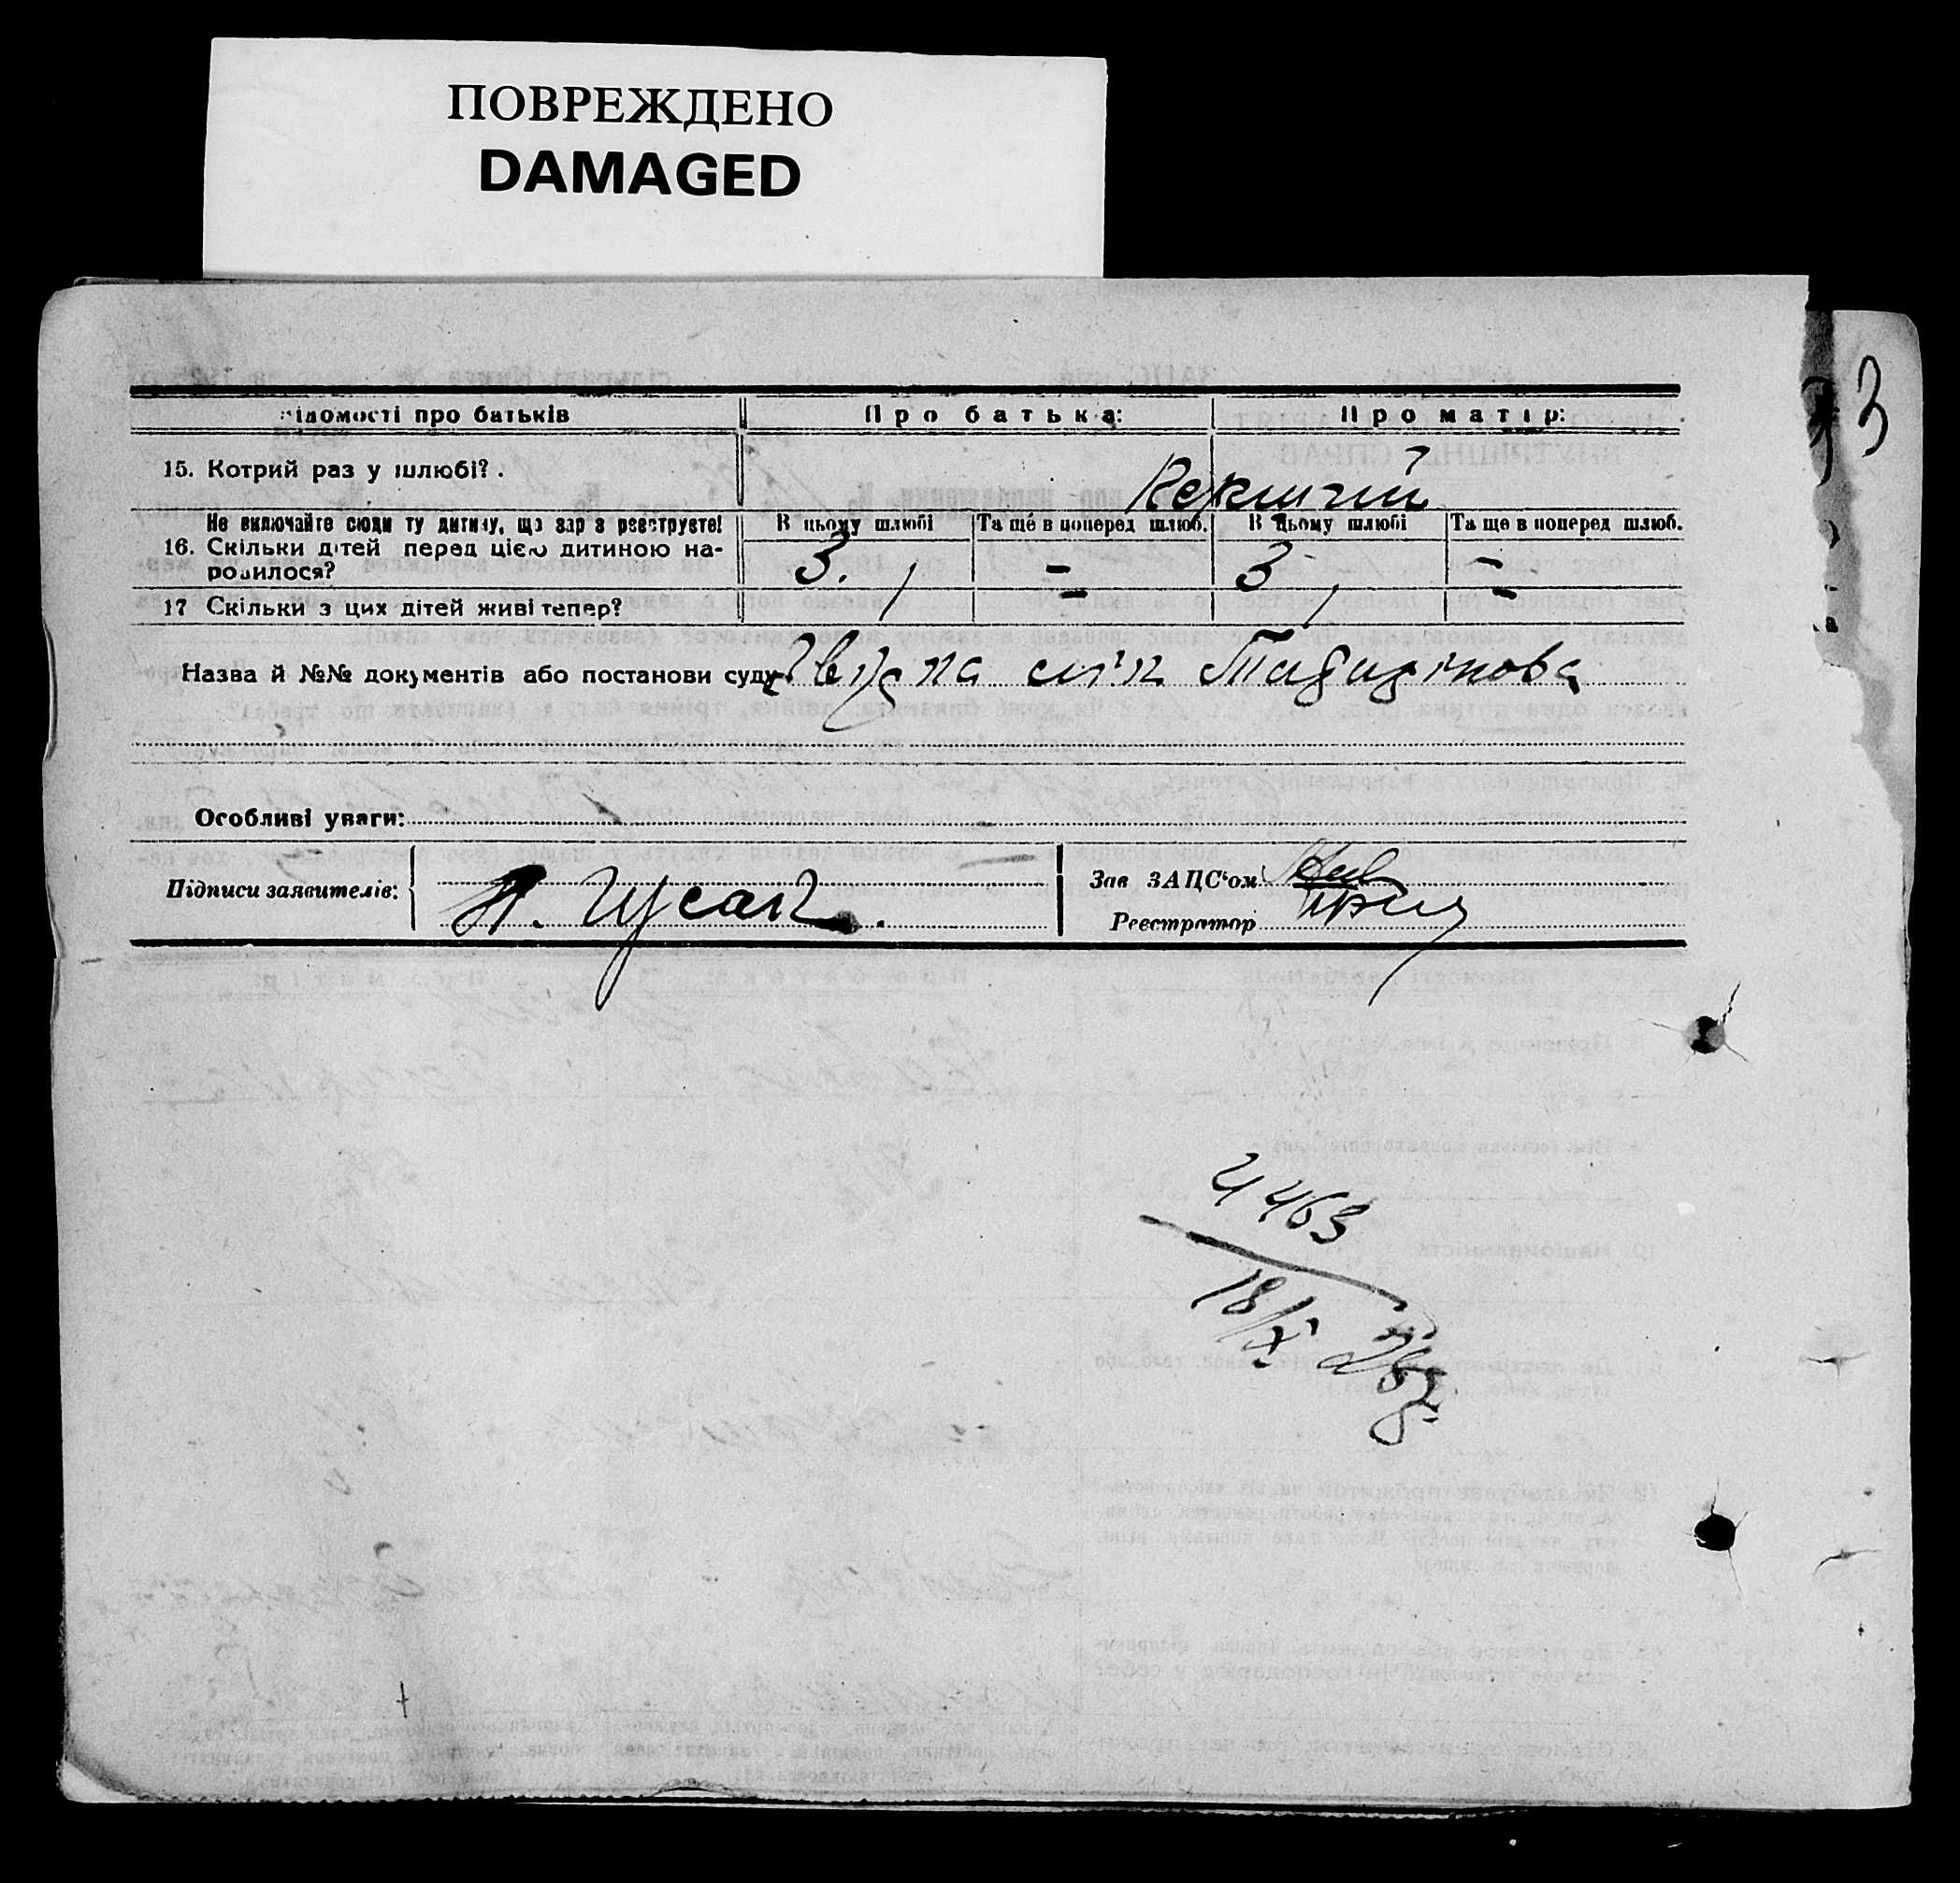 ПОВРЕЖДЕНО
DAMAGED
93
ідомості про батьків
Про батька:
Про матір:
15. Котрий раз у шлюбі?
Не включайте сюди ту дитину, що зараз реєструєте!
В цьому шлюбі
Та ще в поперед шлюб.
В цьому шлюбі
Та ще в поперед шлюб.
16. Скільки дітей перед цією дитиною на-
родилося?
3.
-
3
-
17 Скільки з цих дітей живі тепер?
1
-
1
-
Назва й №№ документів або постанови суду
Особливі уваги:
Підписи заявителів:
Зав ЗАЦС'ом
Реєстратор
4463
18/X 28